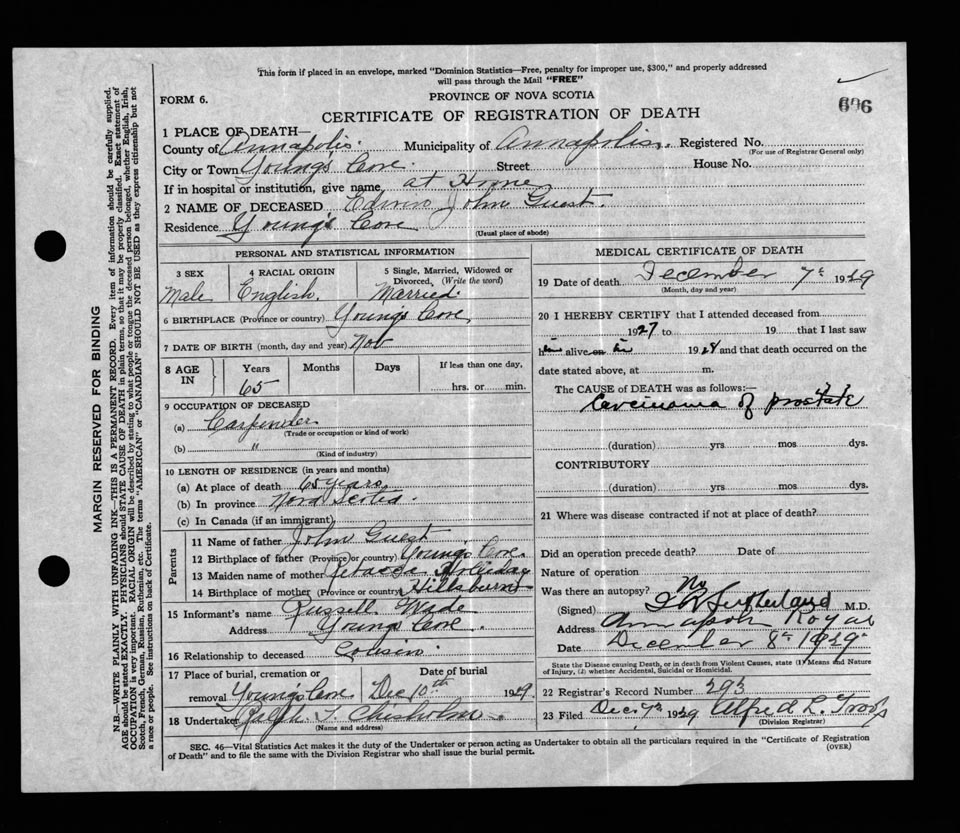 This form if placed in an envelope, marked "Dominion Statistics—Free, penalty for improper use, $300," and properly addressed
will pass through the Mail "FREE"
FORM 6.
PROVINCE OF NOVA SCOTIA
696
CERTIFICATE OF REGISTRATION OF DEATH
1 PLACE OF DEATH—
County of Annapolis. Municipality of Annapolis. Registered No.
(For use of Registrar General only)
City or Town Young's Cove. Street House No.
If in hospital or institution, give name at Home
2 NAME OF DECEASED Edwin John Guest.
Residence Young's Cove
(Usual place of abode)
PERSONAL AND STATISTICAL INFORMATION
3 SEX 4 RACIAL ORIGIN 5 Single, Married, Widowed or
Divorced, (Write the word)
Male English. Married.
6 BIRTHPLACE (Province or country) Youngs Cove.
7 DATE OF BIRTH (month, day and year) Nov
8 AGE IN Years Months Days If less than one day,
65 hrs. or min.
9 OCCUPATION OF DECEASED
(a) Carpenter
(Trade or occupation or kind of work)
(b) "
(Kind of industry)
10 LENGTH OF RESIDENCE (in years and months)
(a) At place of death 65 years.
(b) In province Nova Scotia.
(c) In Canada (if an immigrant)
Parents
11 Name of father John Guest
12 Birthplace of father (Province or country) Young's Cove.
13 Maiden name of mother Rebacca Holliday
14 Birthplace of mother (Province or country) Hillsburn
15 Informant's name Russell Wade
Address Youngs Cove.
16 Relationship to deceased Cousin.
17 Place of burial, cremation or Date of burial
removal Young's Cove Dec 10th 1929.
18 Undertaker Ralph L Chisholm.
(Name and address)
MEDICAL CERTIFICATE OF DEATH
19 Date of death December 7th 1929
(Month, day and year)
20 I HEREBY CERTIFY that I attended deceased from
1927 to 19 that I last saw
him alive on in 1928 and that death occurred on the
date stated above, at m.
The CAUSE of DEATH was as follows:—
Carcinoma of prostate
(duration) yrs mos dys.
CONTRIBUTORY
(duration) yrs. mos. dys.
21 Where was disease contracted if not at place of death?
Did an operation precede death? Date of
Nature of operation
Was there an autopsy? No
(Signed) Sutherland M.D.
Address Annapolis Royal
Date December 8th 1929
State the Disease causing Death, or in death from Violent Causes, state (1) Means and Nature
of Injury, (2) whether Accidental, Suicidal or Homicidal.
22 Registrar's Record Number 293
23 Filed Dec. 9th 1929 Alfred L. Troop
(Division Registrar)
SEC. 46—Vital Statistics Act makes it the duty of the Undertaker or person acting as Undertaker to obtain all the particulars required in the "Certificate of Registration
of Death" and to file the same with the Division Registrar who shall issue the burial permit.
(OVER)
MARGIN RESERVED FOR BINDING
N.B.—WRITE PLAINLY WITH UNFADING INK—THIS IS A PERMANENT RECORD. Every item of information should be carefully supplied.
AGE should be stated EXACTLY. PHYSICIANS should STATE CAUSE OF DEATH in plain terms, so that it may be properly classified. Exact statement of
OCCUPATION is very important. RACIAL ORIGIN will be described by stating to what people or tongue the deceased person belonged, whether English, Irish,
Scotch, French, German, Russian, Ruthenian, etc. The terms "AMERICAN" or "CANADIAN" SHOULD NOT BE USED as they express citizenship but not
a race or people. See instructions on back of Certificate.